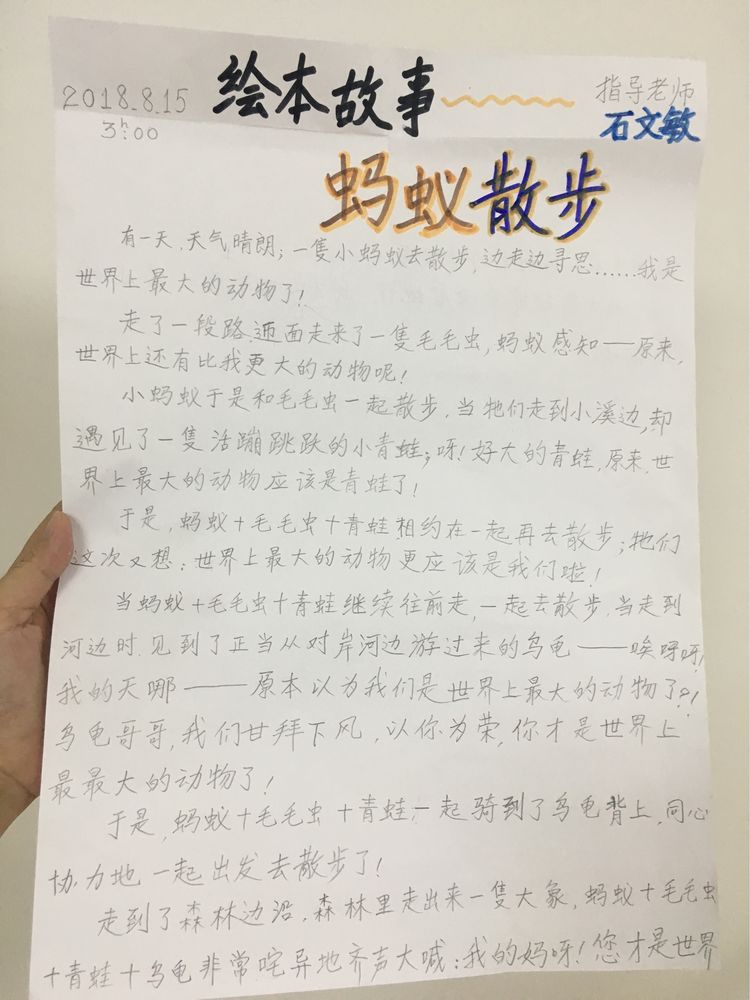 2018.8.15 绘本故事 指导老师
3h:00 石文敏
蚂蚁散步
有一天,天气晴朗;一隻小蚂蚁去散步,边走边寻思……我是
世界上最大的动物了!
走了一段路,迊面走来了一隻毛毛虫,蚂蚁感知——原来,
世界上还有比我更大的动物呢!
小蚂蚁于是和毛毛虫一起散步,当牠们走到小溪边,却
遇见了一隻活蹦跳跃的小青蛙;呀!好大的青蛙,原来,世
界上最大的动物应该是青蛙了!
于是,蚂蚁+毛毛虫+青蛙相约在一起再去散步;牠们
这次又想:世界上最大的动物更应该是我们啦!
当蚂蚁+毛毛虫+青蛙继续往前走,一起去散步,当走到
河边时,见到了正当从对岸河边游过来的乌龟——唉呀呀!
我的天哪——原本以为我们是世界上最大的动物了?!
乌龟哥哥,我们甘拜下风,以你为荣,你才是世界上
最最大的动物了!
于是,蚂蚁+毛毛虫+青蛙,一起骑到了乌龟背上,同心
协力地一起出发去散步了!
走到了森林边沿,森林里走出来一隻大象,蚂蚁+毛毛虫
+青蛙+乌龟非常咤异地齐声大喊:我的妈呀!您才是世界